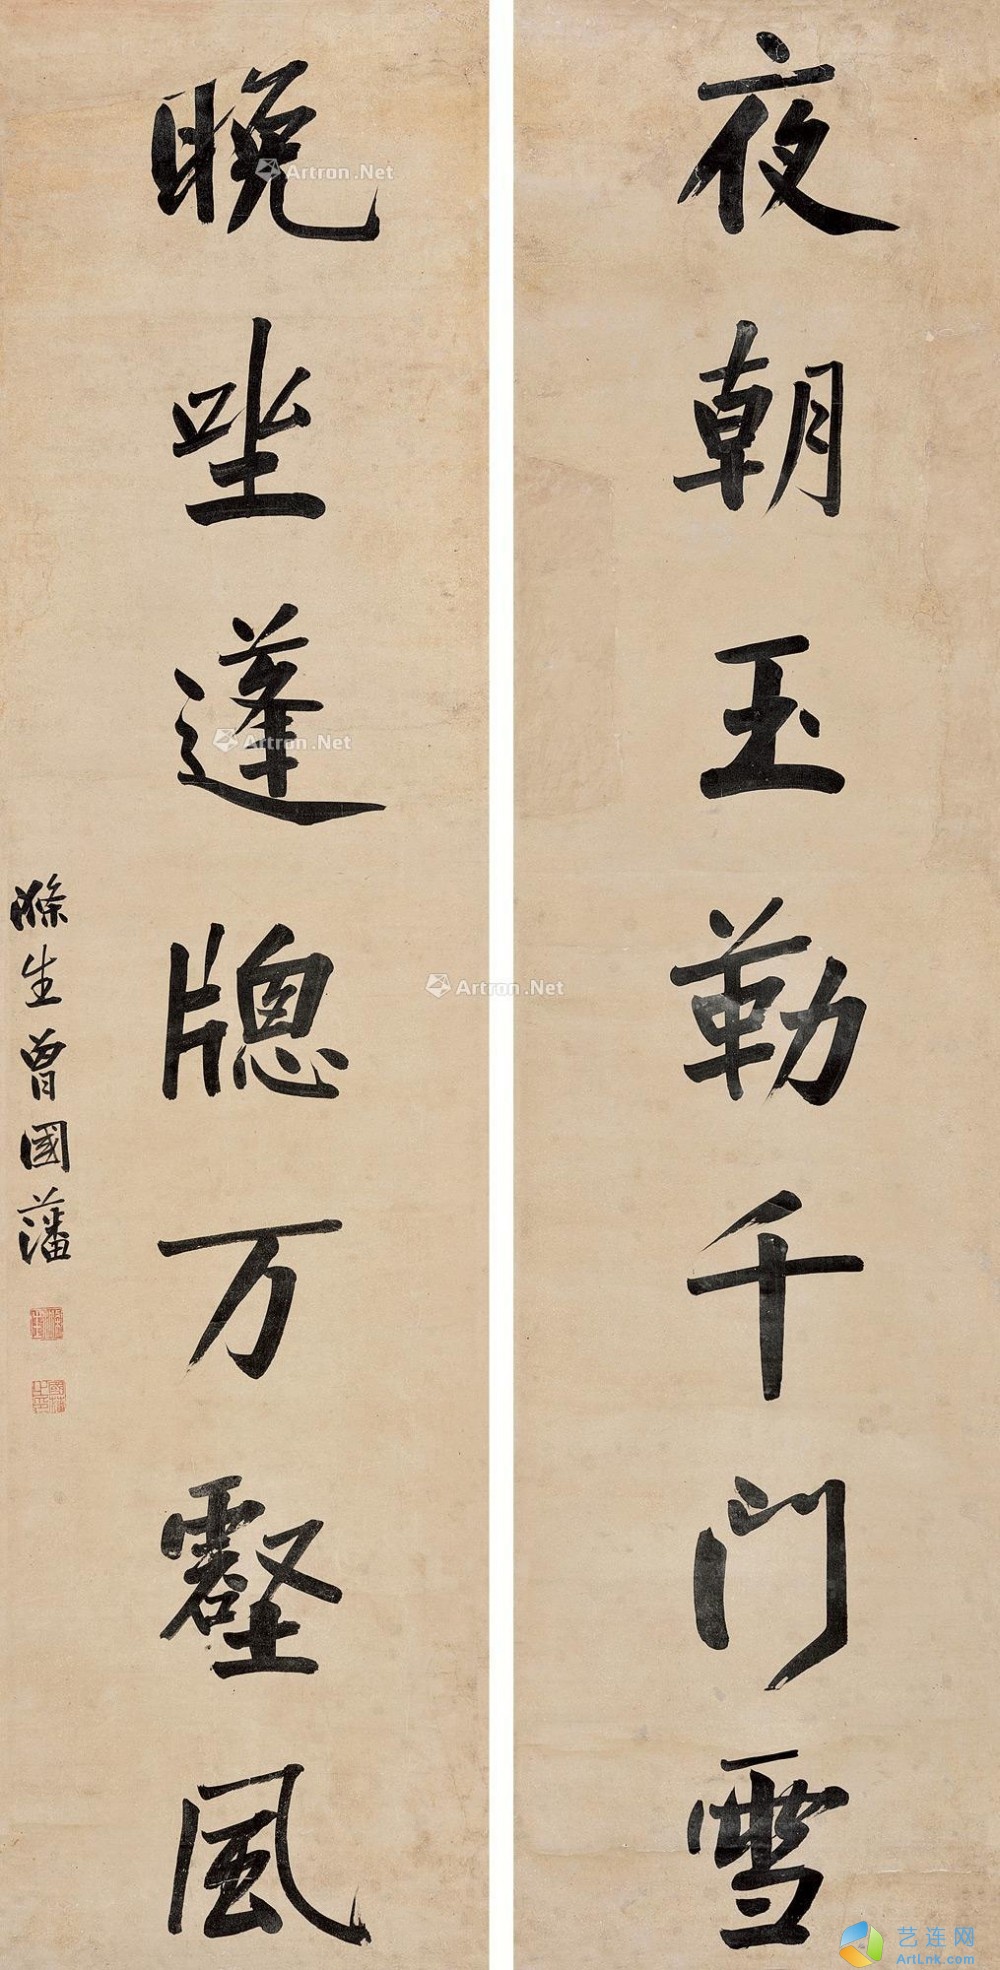 夜朝玉勒千門雪
晚坐蓬牕万壑風
滌生曾國藩
Artron.Net
Artron.Net
Artron.Net
艺连网
ArtLnk.com